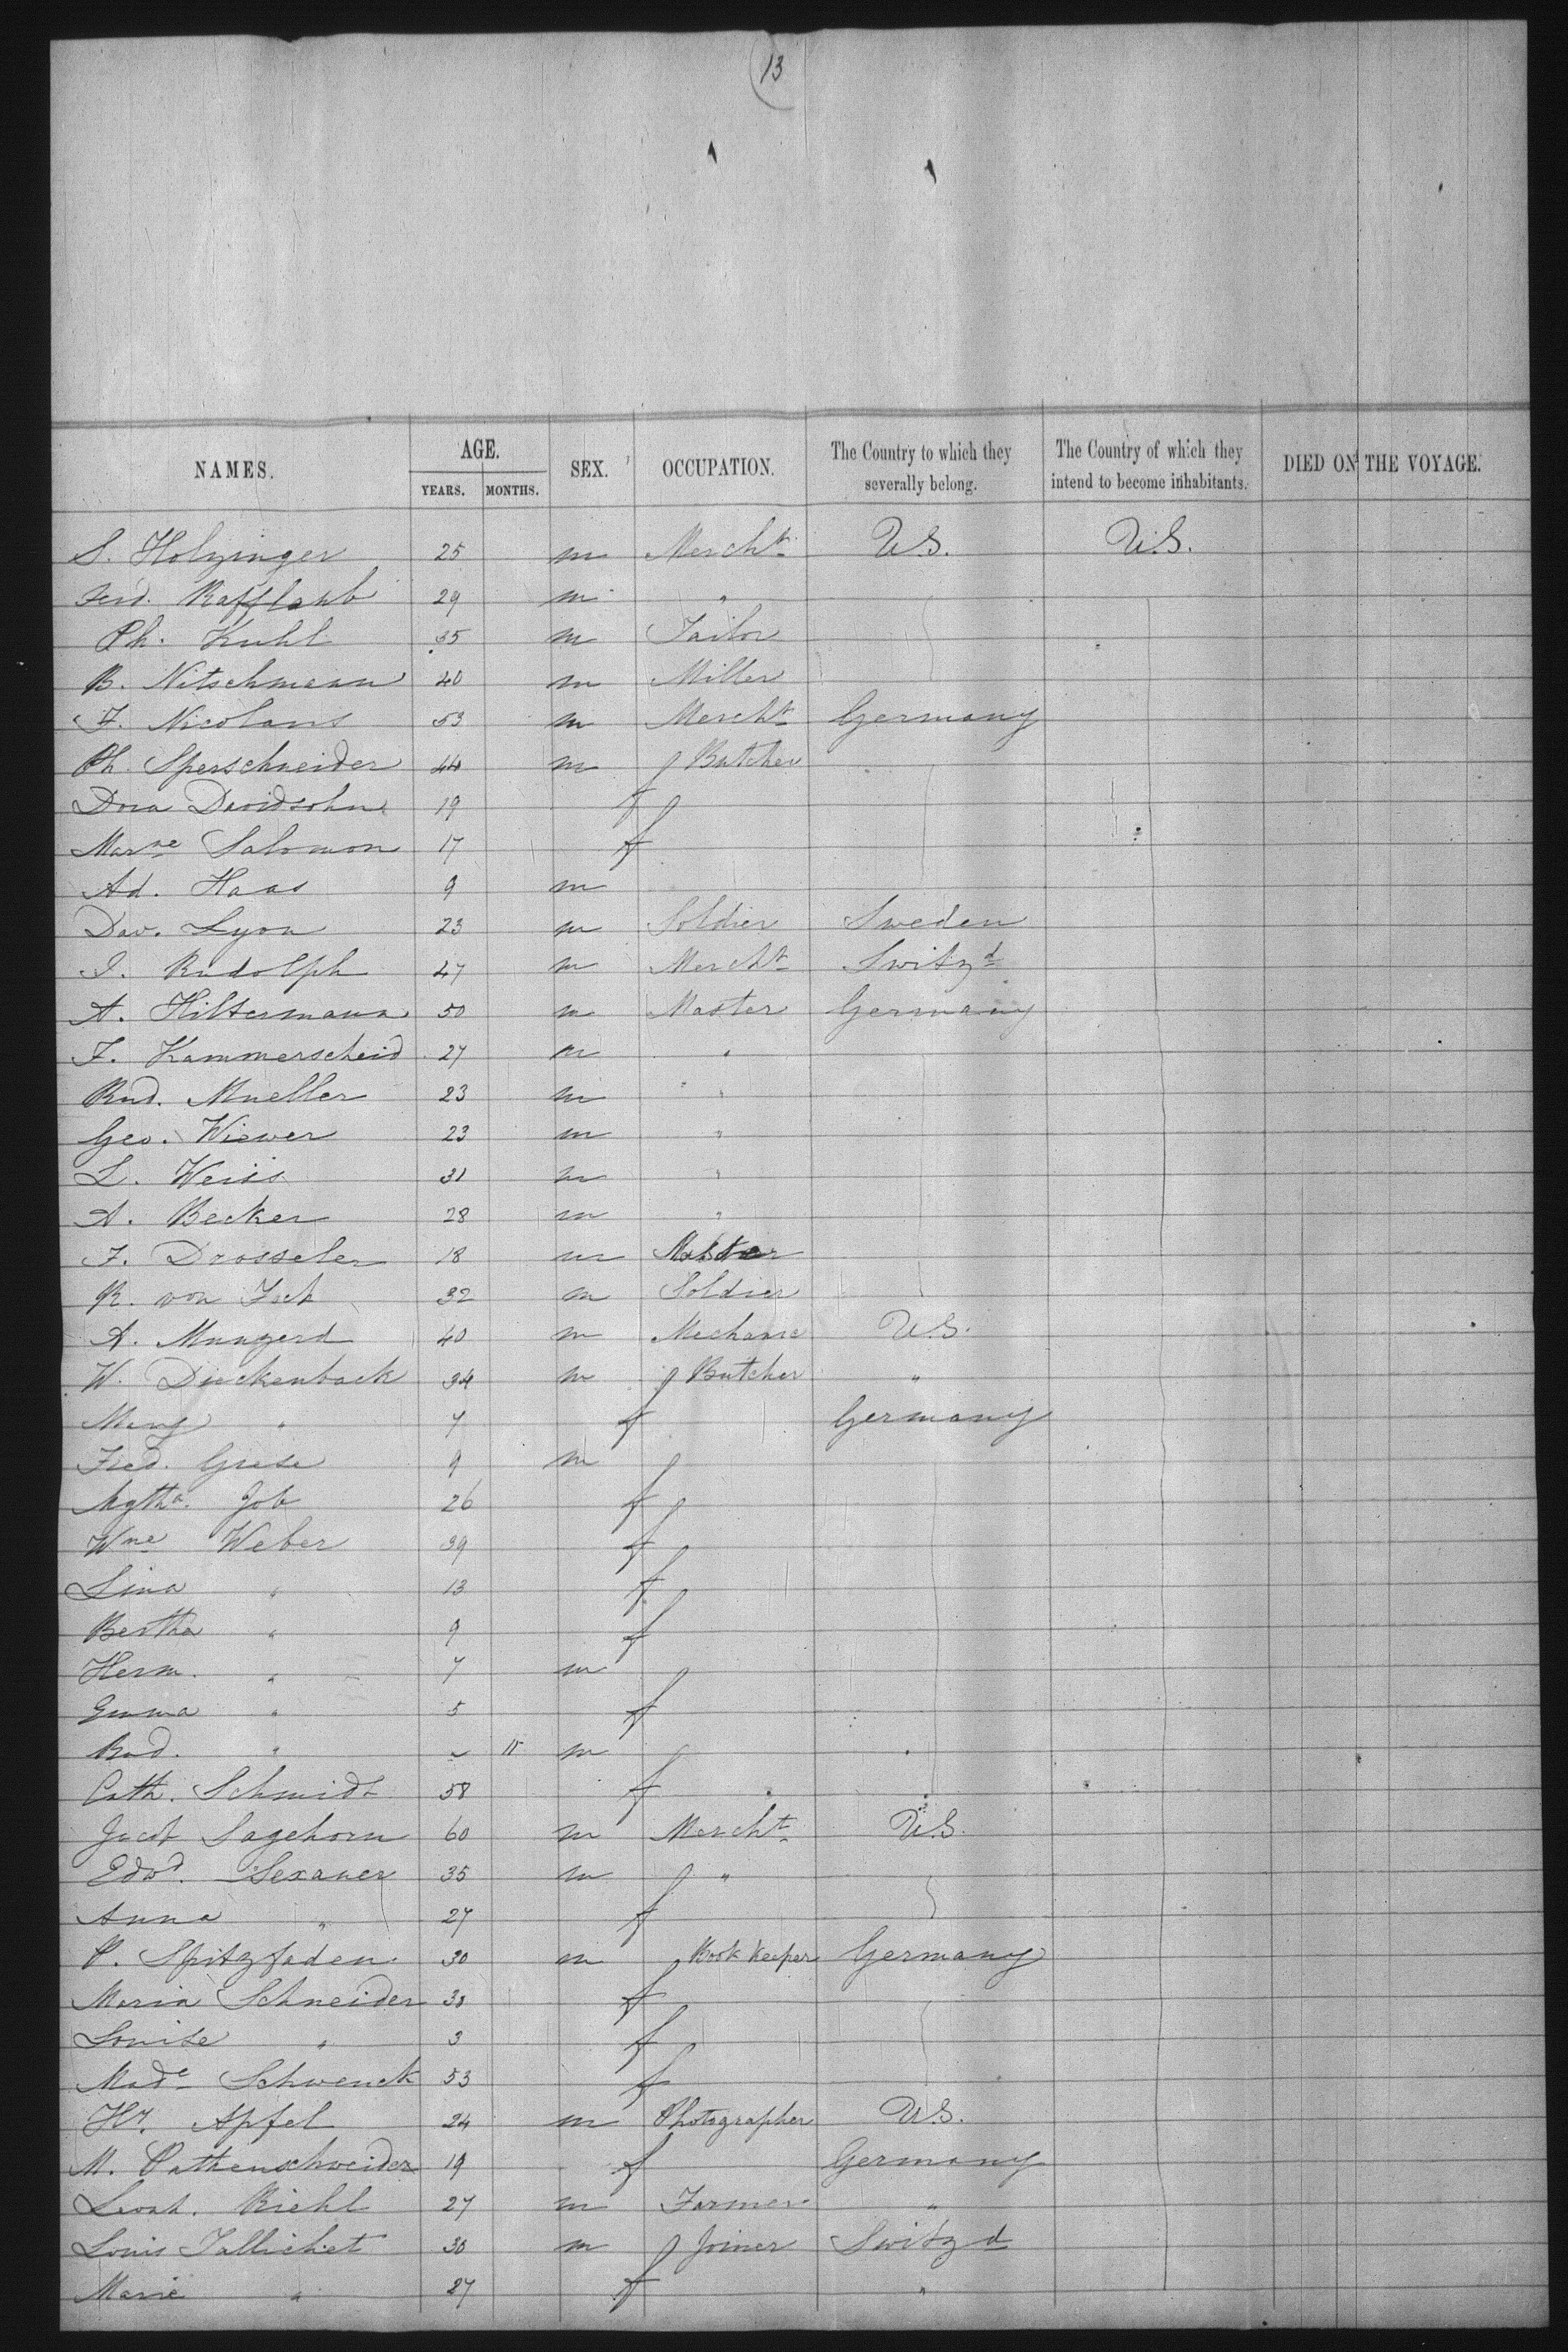 13
NAMES. AGE. YEARS. MONTHS. SEX. OCCUPATION. The Country to which they severally belong. The Country of which they intend to become inhabitants. DIED ON THE VOYAGE.
S. Holzinger 25 m Mercht U.S. U.S.
Ferd. Rafflaub 29 m "
Ph. Kuhl 35 m Tailor
B. Nitschmann 40 m Miller
F. Nicolaus 53 m Mercht Germany
Ph. Sperschneider 44 m Butcher
Dora Davidsohn 19 f
Marne Salomon 17 f
Ad. Haas 9 m
Dav. Lyon 23 m Soldier Sweden
J. Rudolph 47 m Mercht Switzd
A. Hiltermann 50 m Master Germany
F. Kammerscheid 27 m "
Rud. Mueller 23 m "
Geo. Wiewer 23 m "
L. Weiss 31 m "
A. Becker 28 m "
F. Drosseler 18 m Master
R. von 32 m Soldier
A. Mungerd 40 m Mechanic U.S.
W. Dieckenback 34 m Butcher "
Mary " 7 f Germany
Fred. Giese 9 m
Agtha. Job 26 f
Wme Weber 39 f
Lina " 13 f
Bertha " 9 f
Herm. " 7 m
Emma " 5 f
Rud. " m
Cath. Schmidt 58 f
Jacob Sagehorn 60 m Mercht U.S.
Edwd. Sexauer 35 m "
Anna " 27 f
P. Spitzfaden 30 m Book keeper Germany
Maria Schneider f
Louise " 3 f
Made Schwenck 53 f
Hy. Apfel 24 m Photographer U.S.
M. Pattenschneider 19 f Germany
Leonh. Riehl 27 m Farmer "
Louis Tallichet 30 m Joiner Switzd
Marie " 27 f "